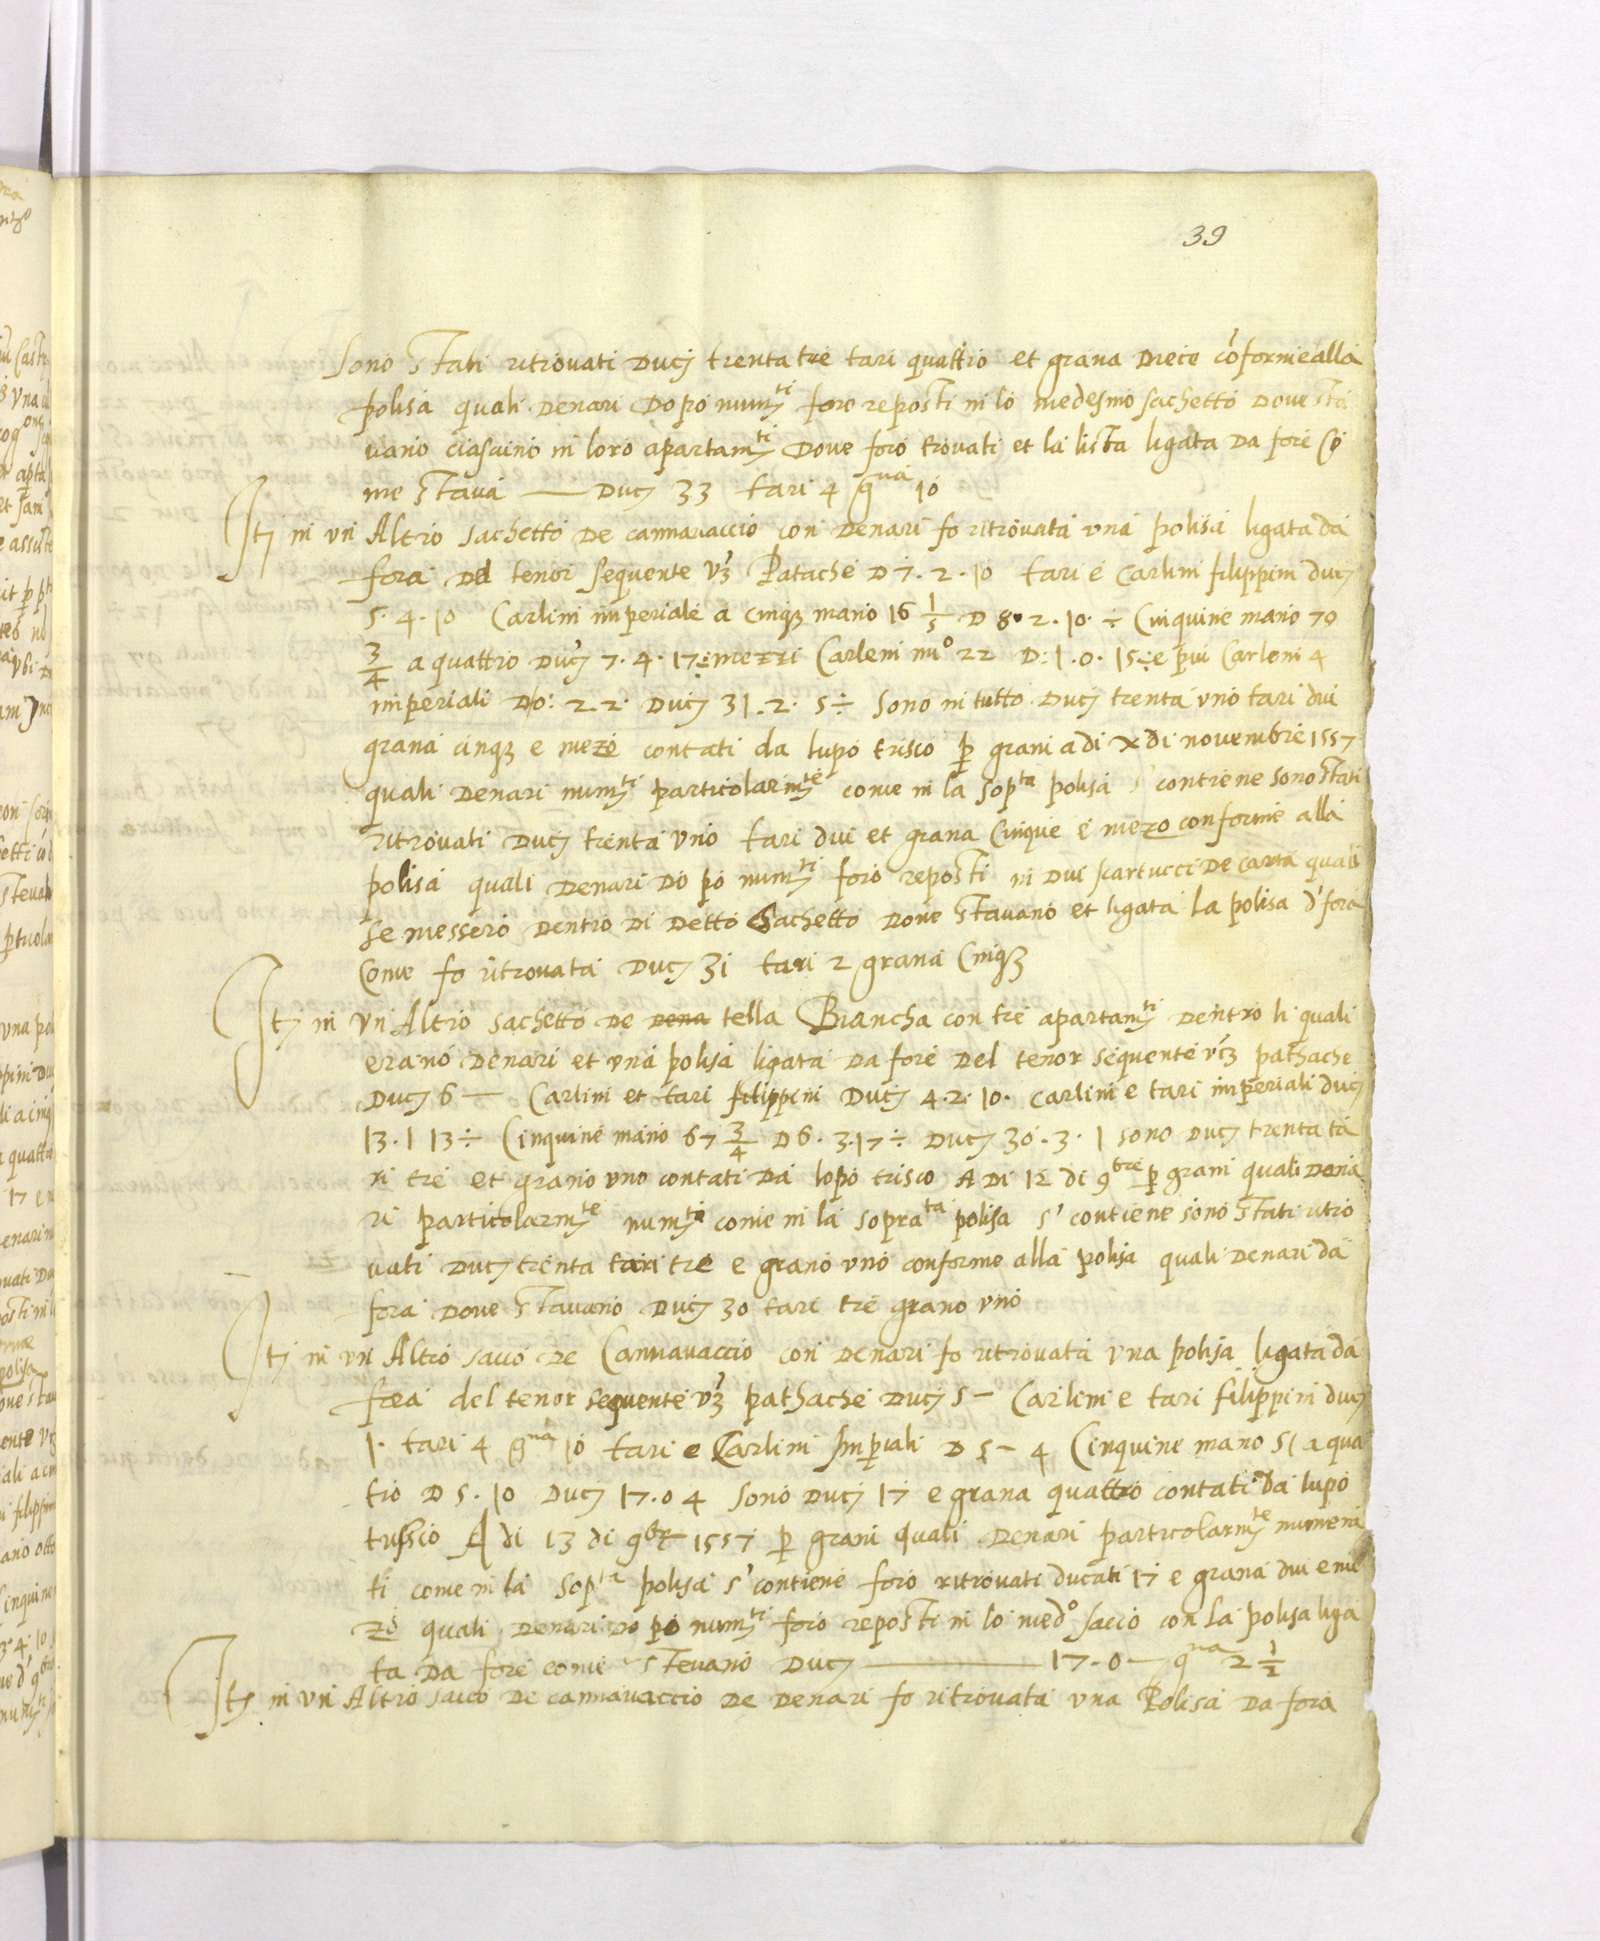 39
sono stati ritrovati Ducj trenta tre tari quattro et grana Diece cōforme alla
polisa quali Denari Dopo numti foro reposti in lo medesmo sachetto Dove sta
vano ciascuno in loro apartamti Dove foro trovati et la lista ligata Da fore co
me stava — Ducj 33 tari 4 gna 10
Itj in un Altro sachetto De cannavaccio con Denari fo ritrovata una polisa ligata da
fora Del tenor sequente vz Patache D 7.2.10 tari e Carlini filippini ducj
5.4.10 Carlini imperiale a cinqz mano 16 1/5 D 8.2.10 ÷ Cinquine mano 70
3/4 a quattro Ducj 7.4.17 ÷ mezzi Carleni nio 22 D: 1.0.15 ÷ e piu Carleni 4
imperiali Do: 2.2. Ducj 31.2.5 ÷ sono in tutto Ducj trenta uno tari dui
grana cinqz e mezo contati da lupo trisco p grani a di x di novembre 1557
quali Denari numti particolarmte come in la sopta polisa s' contiene sono stati
ritrovati Ducj trenta uno tari dui et grana Cinque e mezo conforme alla
polisa quali Denari Dopo numti foro reposti in Dui scartucci De carta quali
se messero Dentro Di Detto Sachetto Dove stavano et ligata la polisa d' fora
Come fo ritrovata Ducj 31 tari 2 grana Cinqz
Itj in un Altro sachetto De dena tella Biancha con tre apartamti Dentro li quali
erano Denari et una polisa ligata Da fore Del tenor sequente vz pathache
Ducj 6 — Carlini et tari filippini Ducj 4.2.10. carlini e tari imperiali ducj
13.1 13 ÷ Cinquine mano 67 3/4 D 6.3.17 ÷ Ducj 30.3.1 sono Ducj trenta ta
ri tre et grano uno contati Da lopo trisco A Di 12 di 9bre p grani quali Dena
ri particolarmte numti come in la soprata polisa s' contiene sono stati ritro
vati Ducj trenta tari tre e grano uno conforme alla polisa quali Denari da
fora Dove stavano Ducj 30 tari tre grano uno
Itj in un Altro sacco De Cannavaccio con Denari fo ritrovata una polisa ligata da
fora del tenor sequente vz pathache Ducj 5 — Carlini e tari filippini ducj
1. tari 4 gna 10 tari e Carlini Imperiali D 5 — 4 Cinquine mano 51 a qua
tro D 5.10 Ducj 17.0 4 sono Ducj 17 e grana quattro contati da lupo
trussio A di 13 di 9br 1557 p grani quali Denari particolarmte numera
ti come in la sopta polisa s' contiene foro ritrovati ducati 17 e grana dui e me
zo quali Denari Dopo numti foro reposti in lo medo sacco con la polisa liga
ta Da fore come stevano Ducj — 17.0 — gna 2 1/2
Itj in un Altro sacco De cannavaccio De Denari fo ritrovata una Polisa Da fora